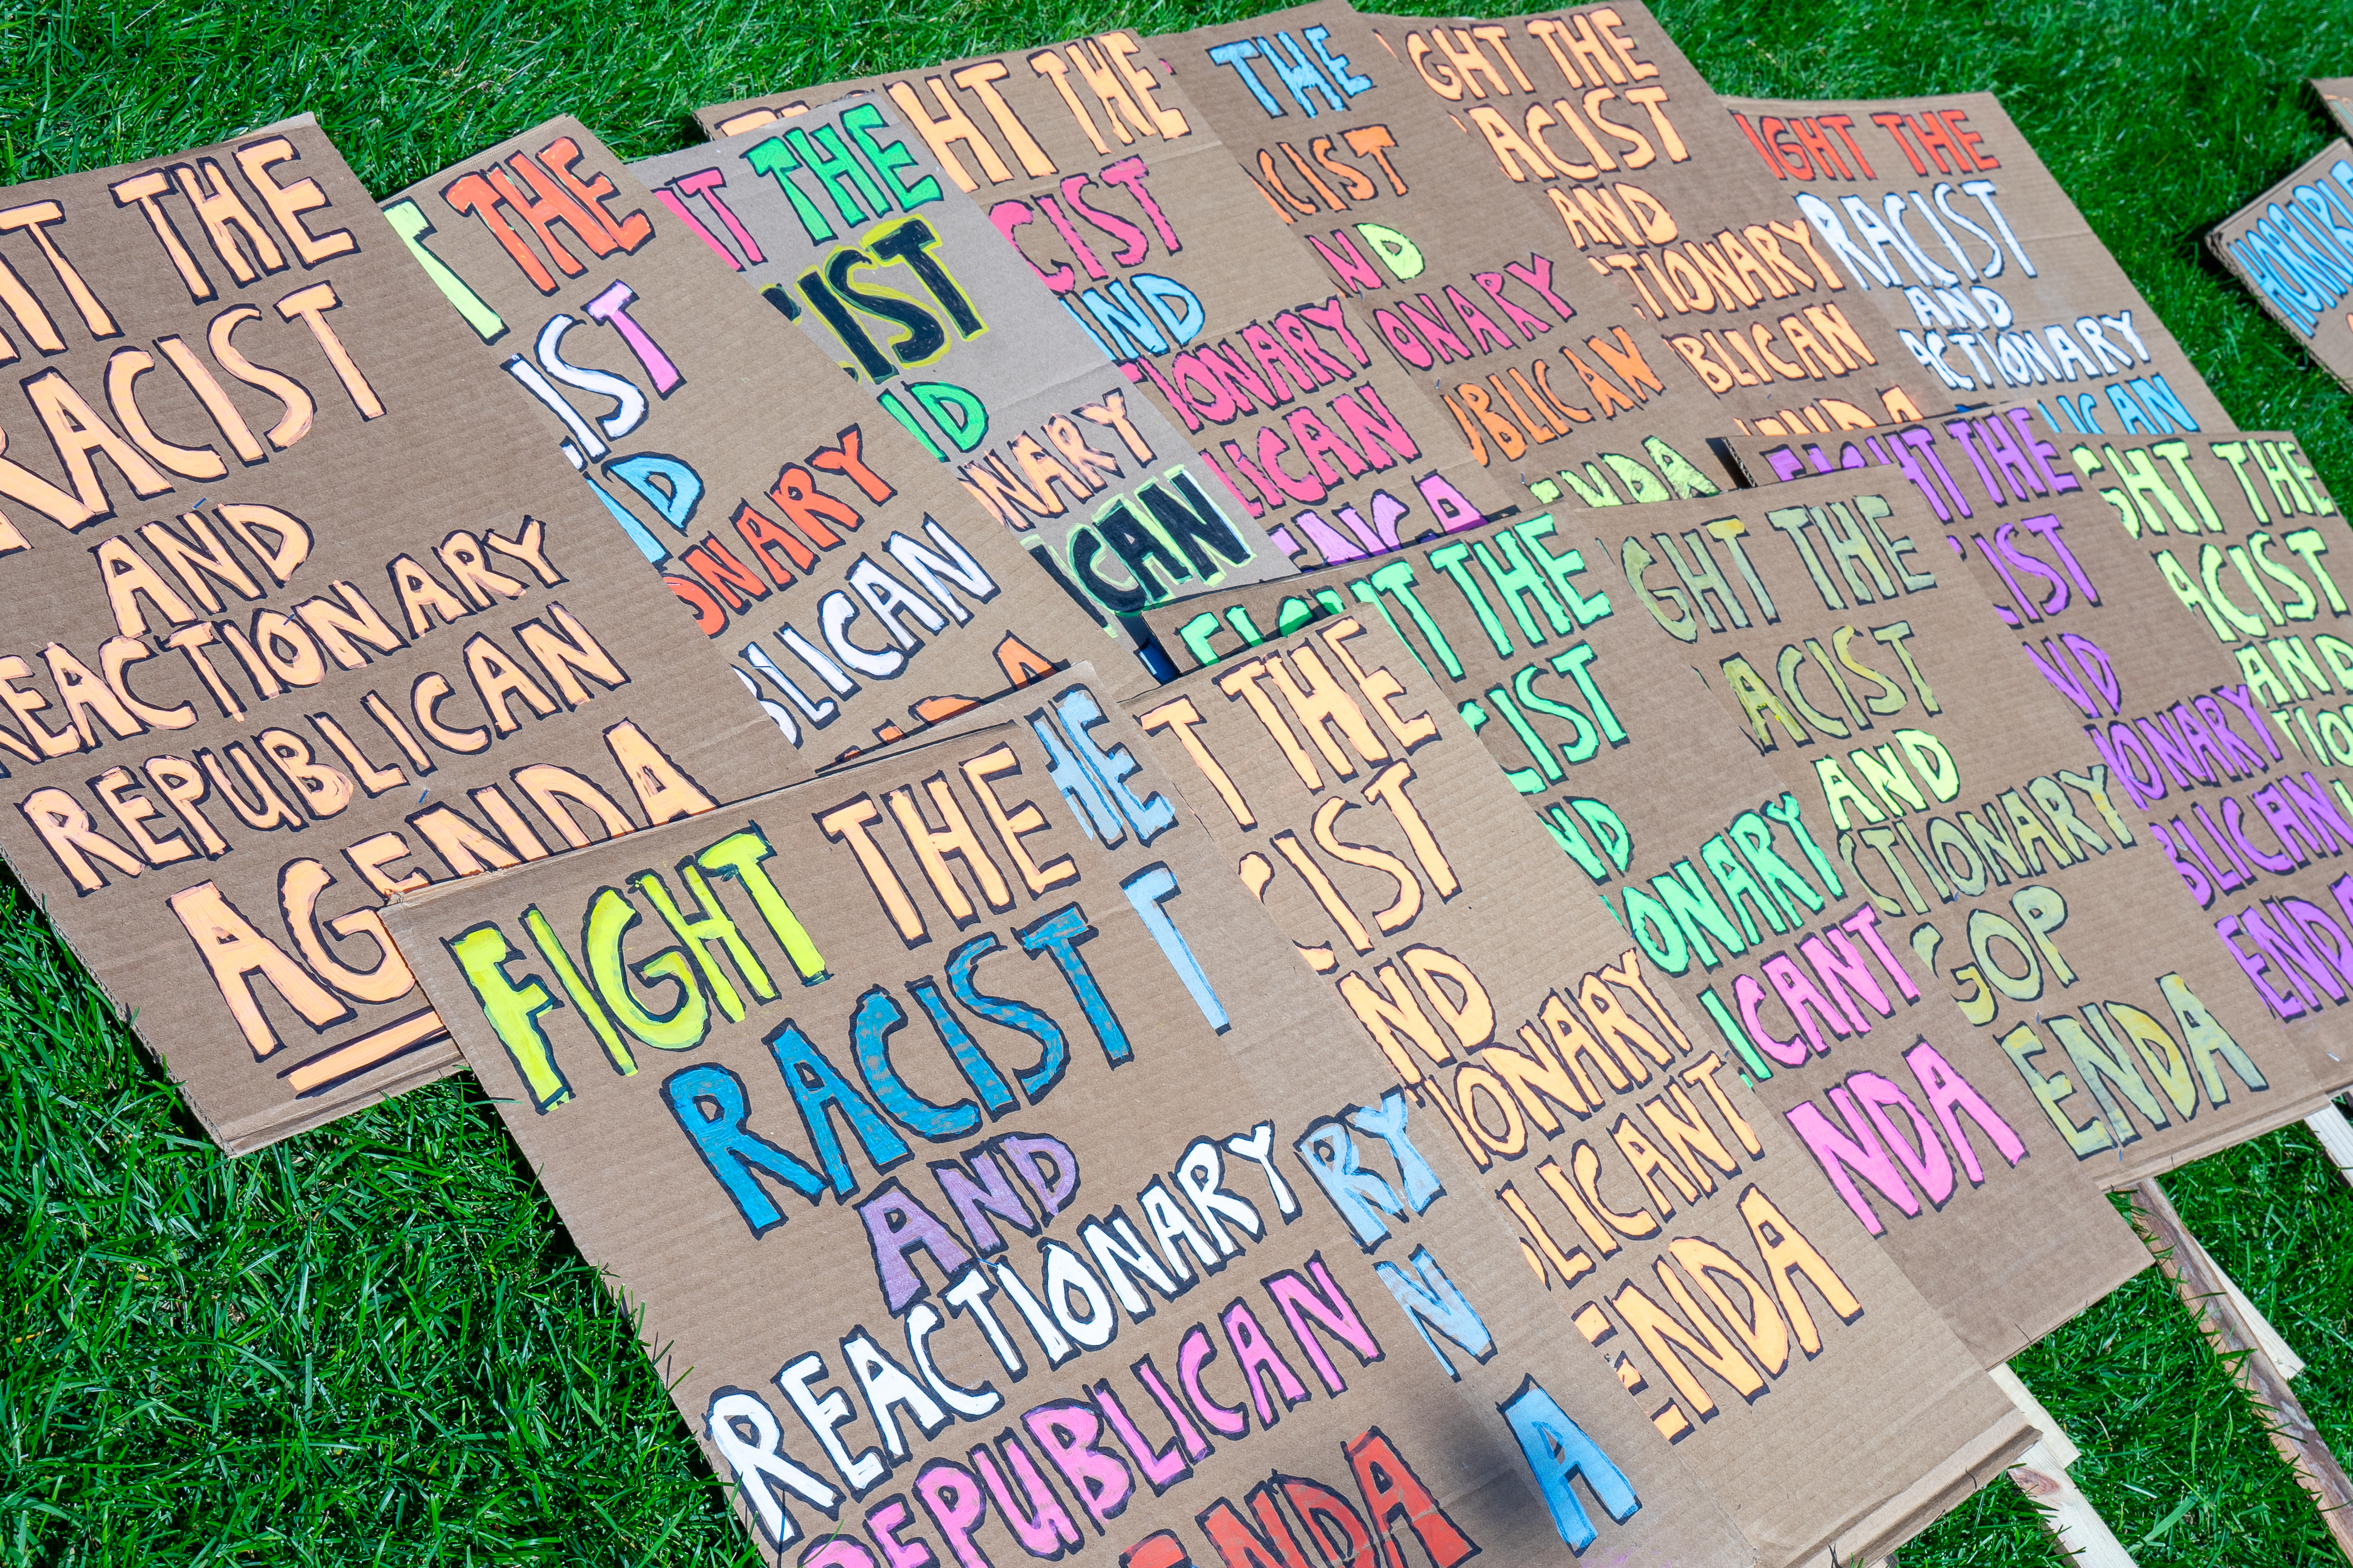 HT THE
RACIST
AND
REACTIONARY
REPUBLICAN
AGENDA
T THE
IST
ND
ONARY
BLICAN
NDA
HT THE
IST
ND
ONARY
ICAN
HT THE
CIST
AND
TIONARY
LICAN
ENDA
THE
CIST
ND
ONARY
UBLICAN
ENDA
IGHT THE
RACIST
AND
CTIONARY
UBLICAN
ENDA
IGHT THE
RACIST
AND
ACTIONARY
LICAN
HORRIBLE
FIGHT THE
RACIST
AND
REACTIONARY
REPUBLICAN
ENDA
HE
T
RY
N
A
T THE
CIST
ND
TIONARY
BLICANT
ENDA
FIGHT THE
CIST
ND
ONARY
ICANT
NDA
GHT THE
ACIST
AND
CTIONARY
GOP
ENDA
FIGHT THE
CIST
ND
IONARY
BLICAN
ENDA
GHT THE
ACIST
AND
TIO